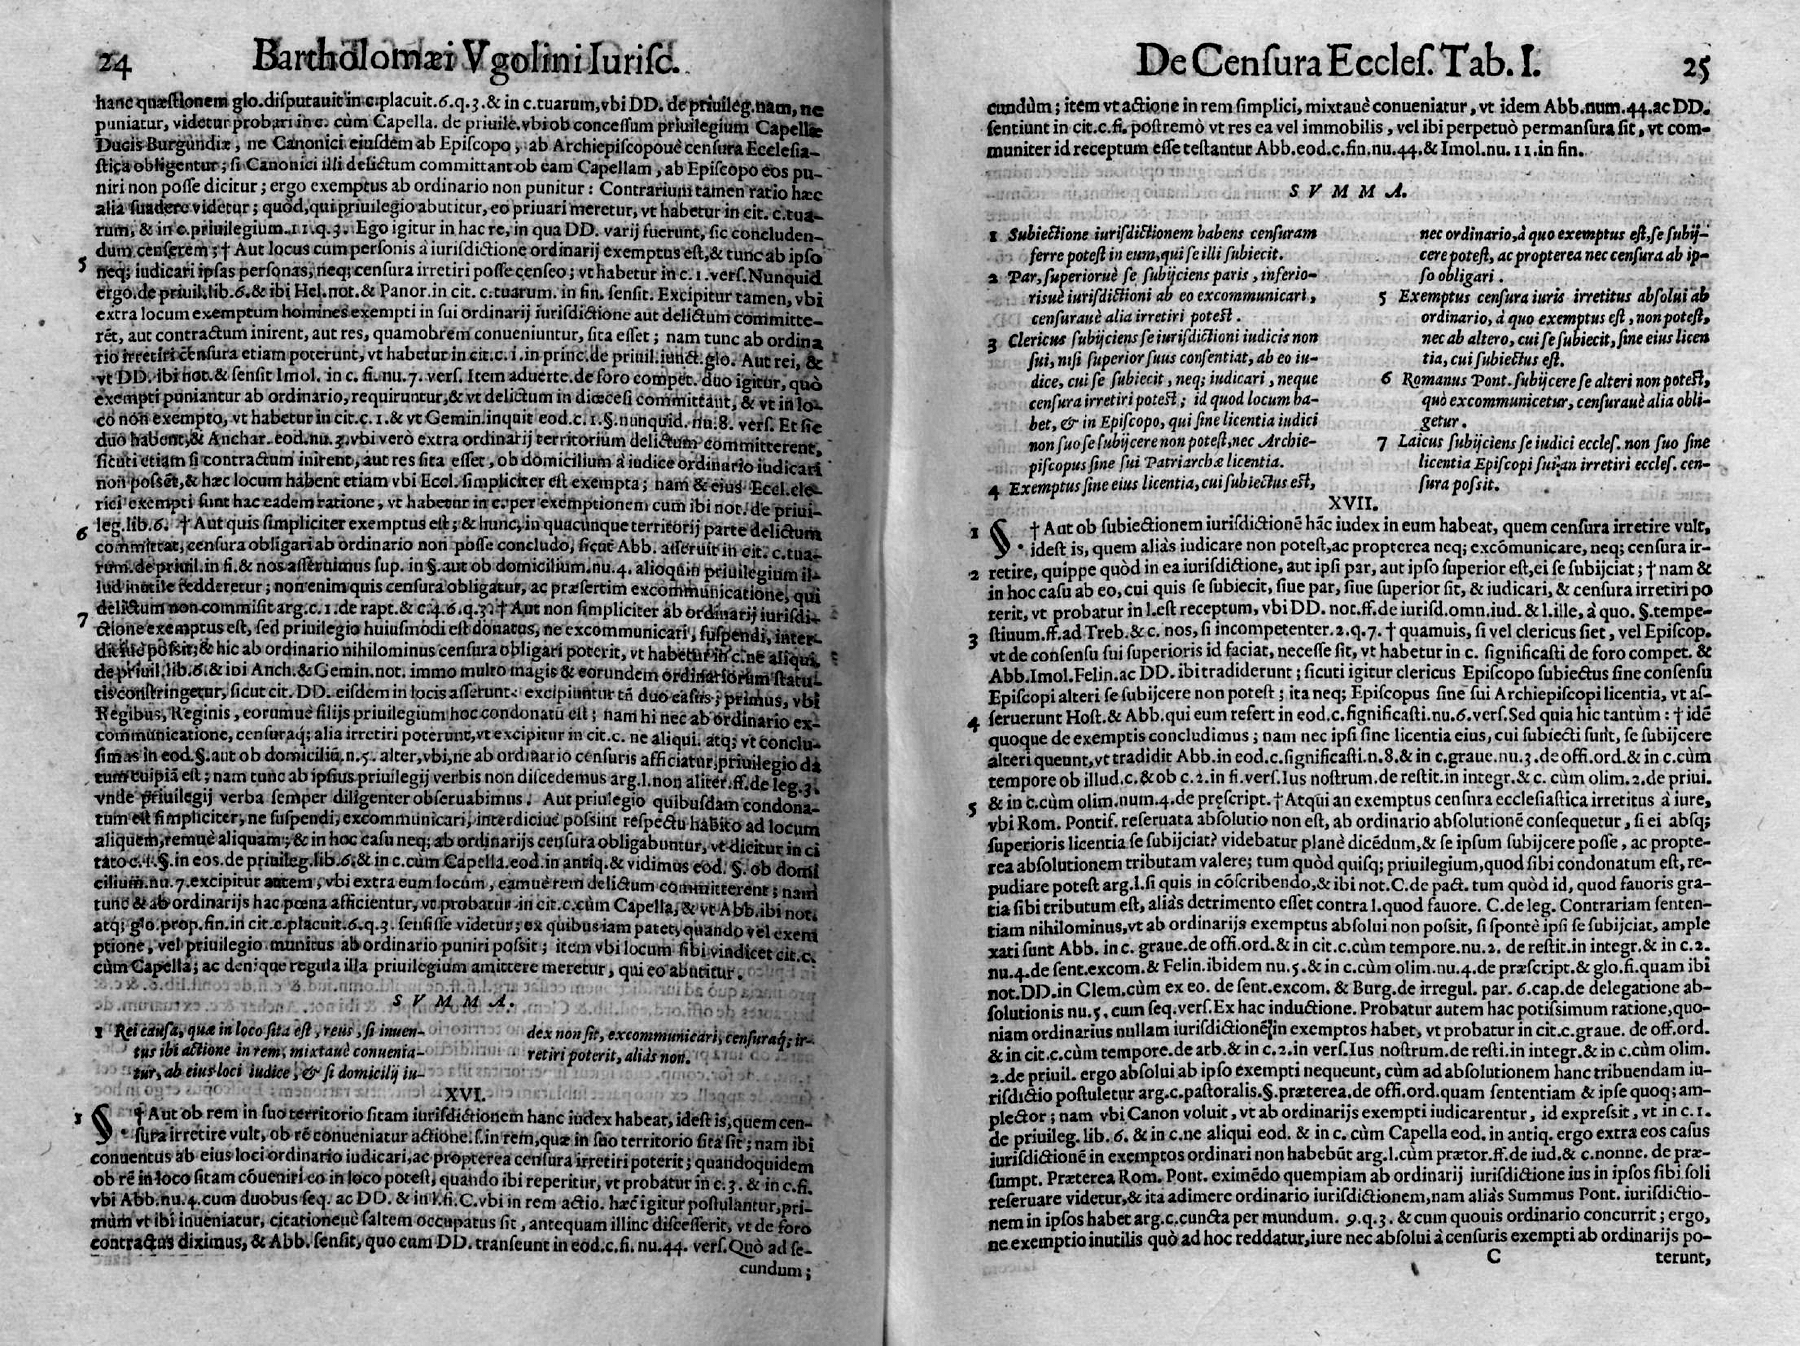 24 Bartholomæi Vgolini Iurisc.
hanc quæstionem glo.disputauit in c.placuit.6.q.3.& in c.tuarum,vbi DD. de priuileg.nam, ne
puniatur, videtur probari in c. cùm Capella. de priuile.vbi ob concessum priuilegium Capellæ
Ducis Burgundiæ, ne Canonici eiusdem ab Episcopo, ab Archiepiscopouè censura Ecclesia-
stica obligentur; si Canonici illi delictum committant ob eam Capellam, ab Episcopo eos pu-
niri non posse dicitur; ergo exemptus ab ordinario non punitur: Contrarium tamen ratio hæc
alia suadere videtur; quòd, qui priuilegio abutitur, eo priuari meretur, vt habetur in cit. c.tua-
rum, & in c.priuilegium.11.q.3. Ego igitur in hac re, in qua DD. varij fuerunt, sic concluden-
dum censerem; † Aut locus cum personis à iurisdictione ordinarij exemptus est,& tunc ab ipso
5 neq; iudicari ipsas personas, neq; censura irretiri posse censeo; vt habetur in c.1.vers.Nunquid
ergo.de priuil.lib.6.& ibi Hel.not.& Panor.in cit. c.tuarum. in fin. sensit. Excipitur tamen, vbi
extra locum exemptum homines exempti in sui ordinarij iurisdictione aut delictum committe-
rēt, aut contractum inirent, aut res, quamobrem conueniuntur, sita esset; nam tunc ab ordina
rio irretiri censura etiam poterunt, vt habetur in cit.c.1.in princ.de priuil.iunct.glo. Aut rei, &
vt DD. ibi not.& sensit Imol. in c. fi. nu.7. vers. Item aduerte.de foro compet. duo igitur, quò
exempti puniantur ab ordinario, requiruntur,& vt delictum in diœcesi committant, & vt in lo-
co non exempto, vt habetur in cit.c.1.& vt Gemin.inquit eod.c.1.§.nunquid.nu.8. vers. Et sic
duo habent,& Anchar.eod.nu.3.vbi verò extra ordinarij territorium delictum committerent,
sicuti etiam si contractum inirent, aut res sita esset, ob domicilium à iudice ordinario iudicari
non possēt,& hæc locum habent etiam vbi Eccl.simpliciter est exempta; nam & eius Eccl.cle-
rici exempti sunt hac eadem ratione, vt habetur in c.per exemptionem cum ibi not. de priui-
leg.lib.6. † Aut quis simpliciter exemptus est; & hunc, in quacunque territorij parte delictum
6 committat, censura obligari ab ordinario non posse concludo, sicut Abb. asseruit in cit. c.tua-
rum.de priuil.in fi.& nos asseruimus sup. in §.aut ob domicilium.nu.4. alioquin priuilegium il-
lud inutile redderetur; non enim quis censura obligatur, ac præsertim excommunicatione, qui
delictum non commisit arg.c.1.de rapt.& c.4.6.q.3.† Aut non simpliciter ab ordinarij iurisdi-
7 ctione exemptus est, sed priuilegio huiusmodi est donatus, ne excommunicari, suspendi, inter-
dicíue possit;& hic ab ordinario nihilominus censura obligari poterit, vt habetur in c.ne aliqui.
de priuil.lib.6.& ibi Anch.& Gemin.not. immo multo magis & eorundem ordinariorum statu-
tis constringetur, sicut cit. DD. eisdem in locis asserunt. excipiuntur tñ duo casus; primus, vbi
Regibus, Reginis, eorumuè filijs priuilegium hoc condonatū est; nam hi nec ab ordinario ex-
communicatione, censuraq; alia irretiri poterunt,vt excipitur in cit.c. ne aliqui. atq; vt conclu-
simus in eod.§.aut ob domiciliū.n.5. alter, vbi,ne ab ordinario censuris afficiatur,priuilegio da
tum cuipiā est; nam tunc ab ipsius priuilegij verbis non discedemus arg.l.non aliter.ff.de leg.3.
vnde priuilegij verba semper diligenter obseruabimus. Aut priuilegio quibusdam condona-
tum est simpliciter, ne suspendi, excommunicari, interdiciue possint respectu habito ad locum
aliquem,remuè aliquam; & in hoc casu neq; ab ordinarijs censura obligabuntur, vt dicitur in ci
tato c.1.§.in eos.de priuileg.lib.6.& in c.cùm Capella.eod.in antiq.& vidimus eod. §. ob domi
cilium.nu.7.excipitur autem, vbi extra eum locum, eamuè rem delictum committerent; nam
tunc & ab ordinarijs hac pœna afficientur, vt probatur in cit.c.cùm Capella, & vt Abb.ibi not.
atq; glo.prop.fin.in cit.c.placuit.6.q.3. sensisse videtur; ex quibus iam patet, quando vel exem
ptione, vel priuilegio munitus ab ordinario puniri possit; item vbi locum sibi vindicet cit.c.
cùm Capella; ac denique regula illa priuilegium amittere meretur, qui eo abutitur.
SVMMA.
1 Rei causa, quæ in loco sita est, reus, si inuen-
tus ibi actione in rem, mixtauè conuenia-
tur, ab eius loci iudice, & si domicilij iu-
dex non sit, excommunicari, censuraq; ir-
retiri poterit, aliàs non.
XVI.
1 §. † Aut ob rem in suo territorio sitam iurisdictionem hanc iudex habeat, idest is,quem cen-
sura irretire vult, ob rē conueniatur actione.s.in rem,quæ in suo territorio sita sit; nam ibi
conuentus ab eius loci ordinario iudicari,ac propterea censura irretiri poterit; quandoquidem
ob rē in loco sitam cōueniri eo in loco potest, quando ibi reperitur, vt probatur in c.3. & in c.fi.
vbi Abb.nu.4.cum duobus seq. ac DD. & in l.fi.C.vbi in rem actio. hæc igitur postulantur,pri-
mùm vt ibi inueniatur, citationeuè saltem occupatus sit, antequam illinc discesserit, vt de foro
contractus diximus, & Abb. sensit, quo cum DD. transeunt in eod.c.fi. nu.44. vers.Quò ad se-
cundum;
De Censura Eccles. Tab. I. 25
cundùm; item vt actione in rem simplici, mixtauè conueniatur, vt idem Abb.num.44.ac DD.
sentiunt in cit.c.fi. postremò vt res ea vel immobilis, vel ibi perpetuò permansura sit, vt com-
muniter id receptum esse testantur Abb.eod.c.fin.nu.44.& Imol.nu. 11.in fin.
SVMMA.
1 Subiectione iurisdictionem habens censuram
ferre potest in eum,qui se illi subiecit.
2 Par, superioruè se subijciens paris, inferio-
risuè iurisdictioni ab eo excommunicari,
censurauè alia irretiri potest.
3 Clericus subijciens se iurisdictioni iudicis non
sui, nisi superior suus consentiat, ab eo iu-
dice, cui se subiecit, neq; iudicari, neque
censura irretiri potest; id quod locum ha-
bet, & in Episcopo, qui sine licentia iudici
non suo se subijcere non potest, nec Archie-
piscopus sine sui Patriarchæ licentia.
4 Exemptus sine eius licentia, cui subiectus est,
nec ordinario,à quo exemptus est,se subij-
cere potest, ac propterea nec censura ab ip-
so obligari.
5 Exemptus censura iuris irretitus absolui ab
ordinario, à quo exemptus est, non potest,
nec ab altero, cui se subiecit, sine eius licen
tia, cui subiectus est.
6 Romanus Pont. subijcere se alteri non potest,
quò excommunicetur, censurauè alia obli-
getur.
7 Laicus subijciens se iudici eccles. non suo sine
licentia Episcopi sui, an irretiri eccles. cen-
sura possit.
XVII.
1 §. † Aut ob subiectionem iurisdictionē hāc iudex in eum habeat, quem censura irretire vult,
idest is, quem aliàs iudicare non potest,ac propterea neq; excōmunicare, neq; censura ir-
2 retire, quippe quòd in ea iurisdictione, aut ipsi par, aut ipso superior est,ei se subijciat; † nam &
in hoc casu ab eo, cui quis se subiecit, siue par, siue superior sit, & iudicari, & censura irretiri po
terit, vt probatur in l.est receptum, vbi DD. not.ff.de iurisd.omn.iud. & l.ille, à quo. §.tempe-
stiuum.ff.ad Treb.& c. nos, si incompetenter.2.q.7. † quamuis, si vel clericus siet, vel Episcop.
3 vt de consensu sui superioris id faciat, necesse sit, vt habetur in c. significasti de foro compet. &
Abb.Imol.Felin.ac DD. ibi tradiderunt; sicuti igitur clericus Episcopo subiectus sine consensu
Episcopi alteri se subijcere non potest; ita neq; Episcopus sine sui Archiepiscopi licentia, vt as-
4 seruerunt Host.& Abb.qui eum refert in eod.c.significasti.nu.6.vers.Sed quia hic tantùm: † idē
quoque de exemptis concludimus; nam nec ipsi sine licentia eius, cui subiecti sunt, se subijcere
alteri queunt, vt tradidit Abb.in eod.c.significasti.n.8.& in c.graue.nu.3.de offi.ord.& in c.cùm
tempore ob illud.c.& ob c.2.in fi.vers.Ius nostrum.de restit.in integr.& c. cùm olim.2.de priui.
5 & in c.cùm olim.num.4.de pręscript.† Atqui an exemptus censura ecclesiastica irretitus à iure,
vbi Rom. Pontif. reseruata absolutio non est, ab ordinario absolutionē consequetur, si ei absq;
superioris licentia se subijciat? videbatur planè dicēdum,& se ipsum subijcere posse, ac propte-
rea absolutionem tributam valere; tum quòd quisq; priuilegium,quod sibi condonatum est, re-
pudiare potest arg.l.si quis in cōscribendo,& ibi not.C.de pact. tum quòd id, quod fauoris gra-
tia sibi tributum est, aliàs detrimento esset contra l.quod fauore. C.de leg. Contrariam senten-
tiam nihilominus,vt ab ordinarijs exemptus absolui non possit, si spontè ipsi se subijciat, ample
xati sunt Abb. in c. graue.de offi.ord.& in cit.c.cùm tempore.nu.2. de restit.in integr.& in c.2.
nu.4.de sent.excom.& Felin.ibidem nu.5.& in c.cùm olim.nu.4.de præscript.& glo.fi.quam ibi
not.DD.in Clem.cùm ex eo. de sent.excom. & Burg.de irregul. par. 6.cap.de delegatione ab-
solutionis nu.5.cum seq.vers.Ex hac inductione. Probatur autem hac potissimum ratione,quo-
niam ordinarius nullam iurisdictionē in exemptos habet, vt probatur in cit.c.graue. de off.ord.
& in cit.c.cùm tempore.de arb.& in c.2.in vers.Ius nostrum.de resti.in integr.& in c.cùm olim.
2.de priuil. ergo absolui ab ipso exempti nequeunt, cùm ad absolutionem hanc tribuendam iu-
risdictio postuletur arg.c.pastoralis.§.præterea.de offi.ord.quam sententiam & ipse quoq; am-
plector; nam vbi Canon voluit, vt ab ordinarijs exempti iudicarentur, id expressit, vt in c.1.
de priuileg. lib. 6. & in c.ne aliqui eod. & in c. cùm Capella eod. in antiq. ergo extra eos casus
iurisdictionē in exemptos ordinari non habebūt arg.l.cùm prætor.ff.de iud.& c.nonne. de præ-
sumpt. Præterea Rom. Pont. eximēdo quempiam ab ordinarij iurisdictione ius in ipsos sibi soli
reseruare videtur,& ita adimere ordinario iurisdictionem,nam aliàs Summus Pont. iurisdictio-
nem in ipsos habet arg.c.cuncta per mundum. 9.q.3. & cum quouis ordinario concurrit; ergo,
ne exemptio inutilis quò ad hoc reddatur,iure nec absolui à censuris exempti ab ordinarijs po-
C terunt,